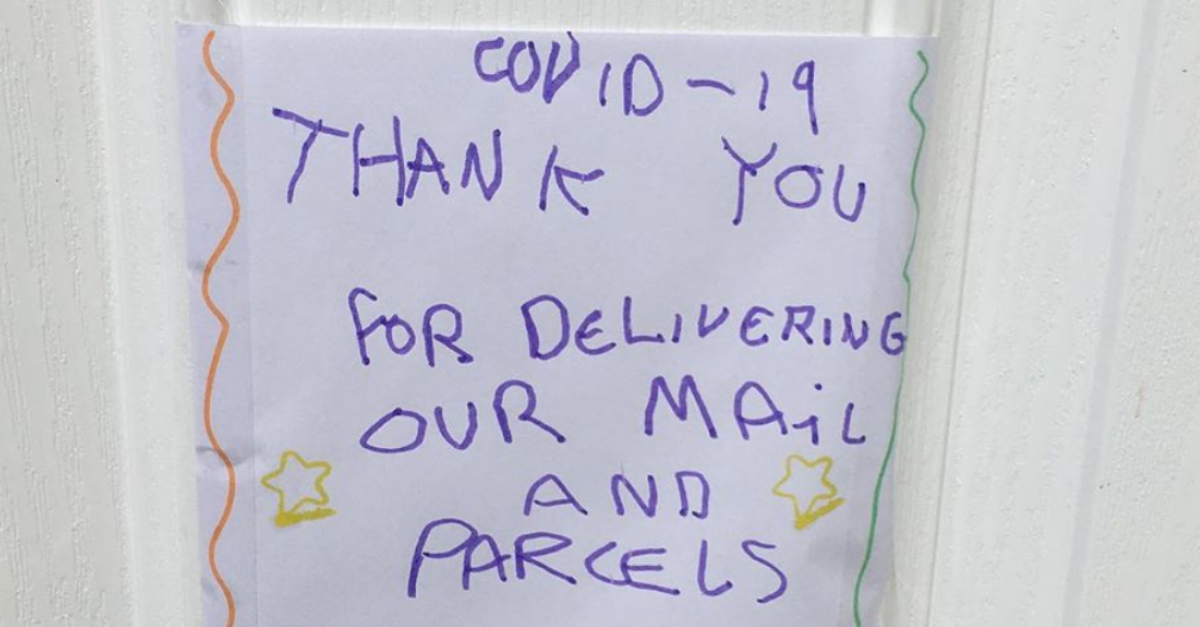 COVID-19
THANK YOU
FOR DELIVERING
OUR MAiL
AND
PARCELS